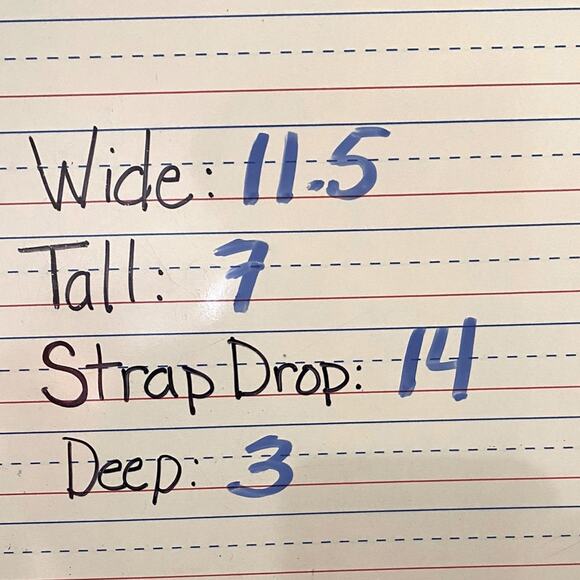 Wide: 11.5
Tall: 7
Strap Drop: 14
Deep: 3